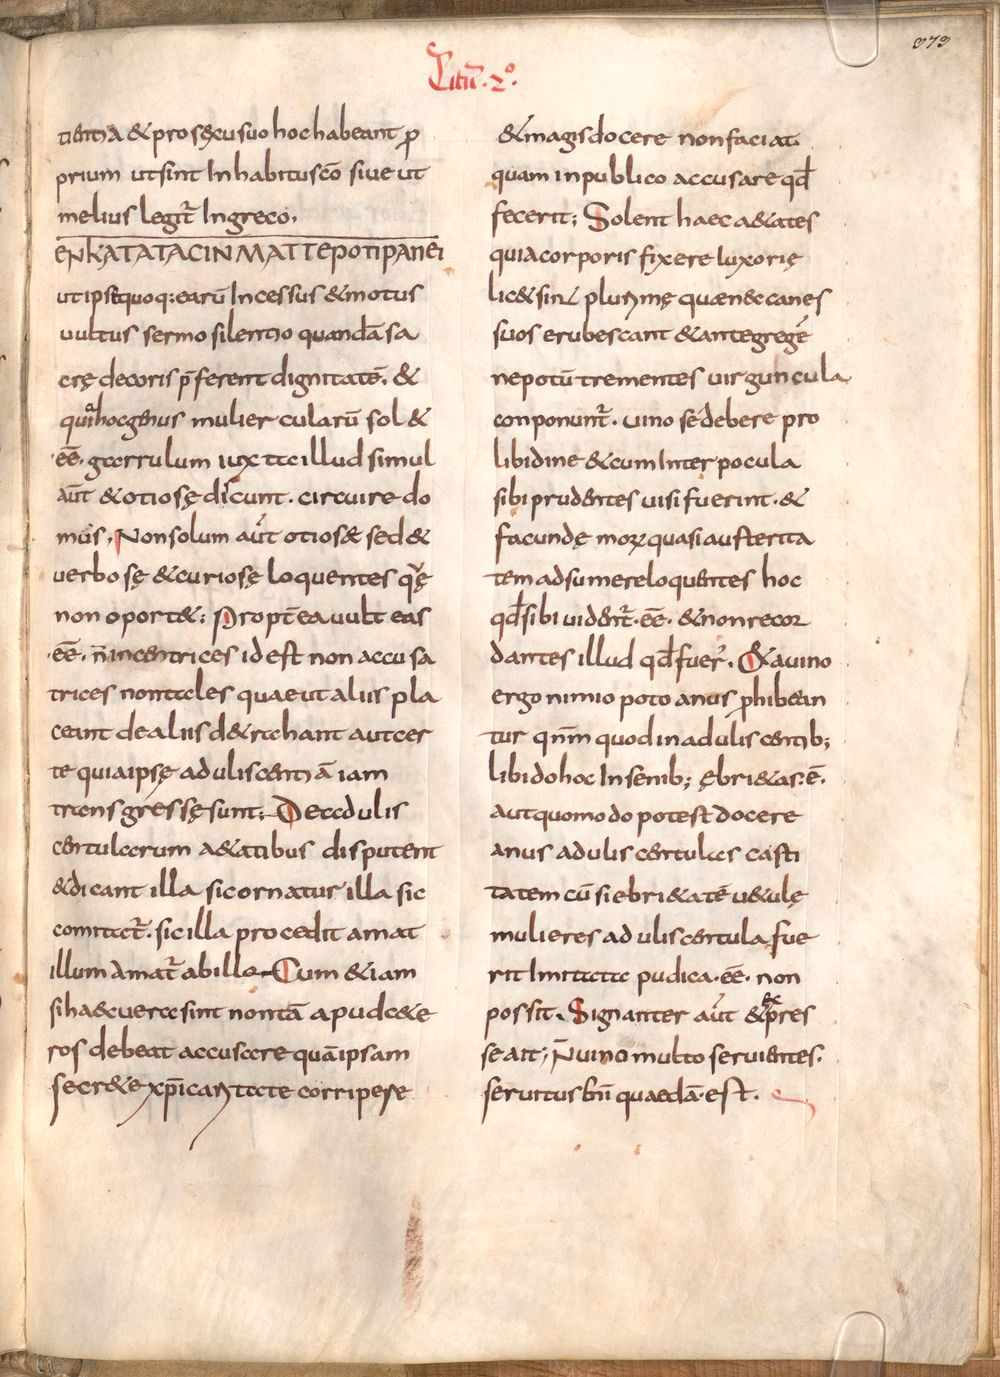 079
Titū · 2º.
tientia & pro sęcu suo hoc habeant p̱
prium ut sint In habitu scō siue ut
melius legit̄ In greco,
EN KATATACIN MATTEPOTIPANEI
ut ipse quoq; earū Incessus & motus
uultus sermo silentio quandā sa
crę decoris p̄ferent dignitatē. &
qm̊ hoc genus mulier cularū sol&
·ēē. garrulum iuxta illud simul
aūt & otiosę dicunt. circuire do
mus, Non solum aūt otios& sed &
uerbosę & curiosę loquentes q̄ę
non oport&: Propt̄ea uult eas
·ēē. n̄ incentrices id est non accusa
trices non tales quae ut aliis pla
ceant de aliis d&rahant aut cer
te quia ipsę aduliscentiā iam
transgressę sunt; De adulis
centularum a&atibus disputent
& dicant illa sic ornatur illa sic
comitat̄. sic illa procedit amat
illum Amat̄ ab illo. Cum &iam
si haec uera sint non tā apud c&e
ros debeat accusare quā ipsam
secr&e xp̄i caritate corripere
& magis docere non faciat.
quam in publico accusare qd̄
fecerit; Solent haec a&ates
quia corporis fixere luxorię
lic& sin& plurimę quae nec canes
suos erubescant & ante gregē
nepotū trementes uirguncula
conponunt̄. uino se debere pro
libidine & cum Inter pocula
sibi prudentes uisi fuerint. &
facundę morꝝ quasi austerita
tem adsumere loquentes hoc
qd̄ sibi uident̄. ēē. & non recor
dantes illud qd̄ fuer̄. &a uino
ergo nimio poto anus p̱hibean
tur qn̄m quod in aduliscentib;
libido hoc In senib; ębri&as. ē.
aut quomodo potest docere
anus aduliscentulas casti
tatem cū si ebri&atē u&ulę
mulieres aduliscentula fue
rit Imitata pudica. ēē. non
possit. Signanter aūt & exp̱res
se ait; N̄ uino multo seruientes.
seruitus en̄ quaedā. est.